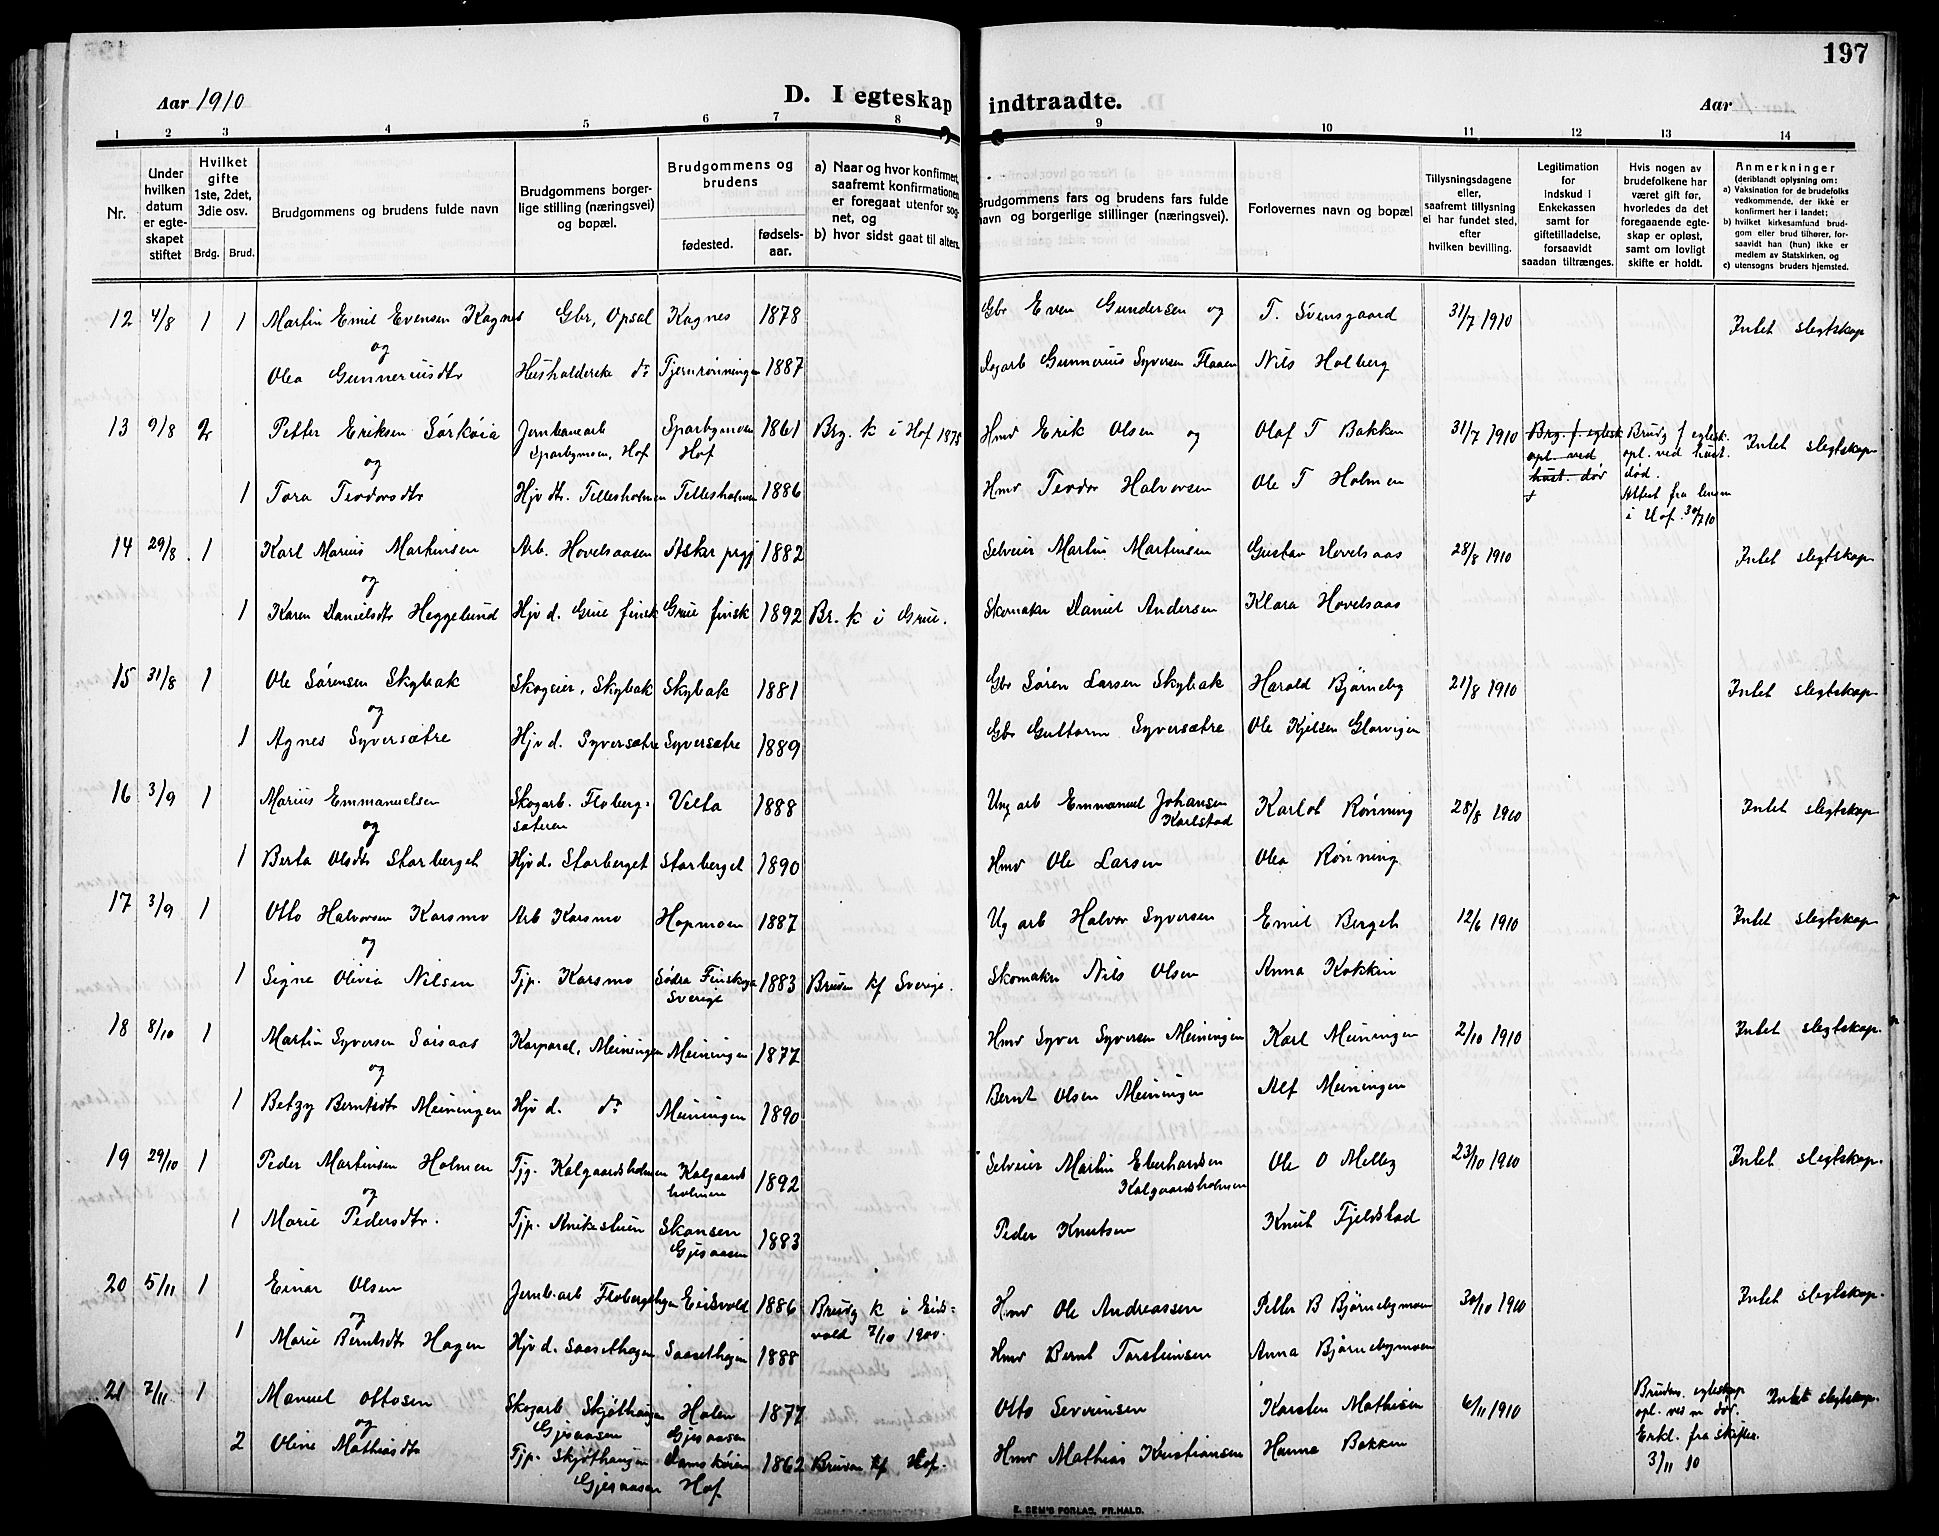 197
Aar 1910
D. I egteskap indtraadte.
Aar
1 2 3 4 5 6 7 8 9 10 11 12 13 14
Nr.
Under hvilken datum er egteskapet stiftet
Hvilket gifte 1ste, 2det, 3die osv.
Brdg. Brud.
Brudgommens og brudens fulde navn
Brudgommens borgerlige stilling (næringsvei) og bopæl.
Brudgommens og brudens
fødested.
fødselsaar.
a) Naar og hvor konfirmert, saafremt konfirmationen er foregaat utenfor sognet, og
b) hvor sidst gaat til alters.
Brudgommens fars og brudens fars fulde navn og borgerlige stillinger (næringsvei).
Forlovernes navn og bopæl
Tillysningsdagene eller, saafremt tillysning ei har fundet sted, efter hvilken bevilling.
Legitimation for indskud i Enkekassen samt for giftetilladelse, forsaavidt saadan tiltrænges.
Hvis nogen av brudefolkene har været gift før, hvorledes da det foregaaende egteskap er opløst, samt om lovligt skifte er holdt.
Anmerkninger (deriblandt oplysning om: a) Vaksination for de brudefolks vedkommende, der ikke er konfirmert her i landet; b) hvilket kirkesamfund brudgom eller brud tilhører, forsaavidt han (hun) ikke er medlem av Statskirken, og c) utensogns bruders hjemsted.
12 4/8 1 1 Martin Emil Evensen Kagnes Gbr, Opsal Kagnes 1878 Gbr Even Gundersen og T. Svensgaard 31/7 1910 Intet slegtskap
og
Olea Gunneriusdtr Husholderske do Tjernrønningen 1887 Dagarb Gunnerius Syversen Flaaen Nils Holberg
13 9/8 2 Petter Eriksen Sørkøia Jernbanearb Sparbymoen, Hof Sparbymoen Hof 1861 Brg. k i Hof 1875 Hmd Erik Olsen og Olaf T Bakken 31/7 1910 Brg. f. egtesk opl. ved hust. dør Brudg f egtesk. opl. ved hust. død. Attest fra lensm i Hof 30/7 10 Intet slegtskap
og
1 Tora Teodorsdtr Hjv dtr. Tellesholmen Tellesholmen 1886 Hmd Teodor Halvorsen Ole T Holmen
14 29/8 1 Karl Marius Martinsen Arb. Hovelsaasen Asker prgj 1882 Selveier Martin Martinsen Gustav Hovelsaas 28/8 1910 Intet slegtskap
og
1 Karen Danielsdtr Heggelund Hjv d. Grue finsk Grue finsk 1892 Br. k i Grue. Skomaker Daniel Andersen Klara Hovelsaas
15 31/8 1 Ole Sørensen Skybak Skogeier, Skybak Skybak 1881 Gbr Søren Larsen Skybak Harald Bjørneby 21/8 1910 Intet slegtskap
og
1 Agnes Syversætre Hjv d. Syversætre Syversætre 1889 Gbr Guttorm Syversætre Ole Kjelsen Glorvigen
16 3/9 1 Marius Emmanuelsen Skogarb. Flobergsæteren Velta 1888 Ug arb Emmanuel Johansen Karlstad Karlot Rønning 28/8 1910 Intet slegtskap
og
1 Berta Olsdtr Storberget Hjv d. Storberget Storberget 1890 Hmd Ole Larsen Olea Rønning
17 3/9 1 Otto Halvorsen Korsmo Arb Korsmo Hopmoen 1887 Ug arb Halvor Syversen Emil Berget 12/6 1910 Intet slegtskap
og
1 Signe Olivia Nilsen Tjp. Korsmo Södra Finskoga Sverige 1883 Bruden kf Sverige. Skomaker Nils Olsen Anna Kokkin
18 8/10 1 Martin Syversen Sorsaas Korporal, Meiningen Meiningen 1877 Hmd Syver Syversen Meiningen Karl Meiningen 2/10 1910 Intet slegtskap
og
1 Betzy Berntsdtr Meiningen Hjv d. do Meiningen 1890 Bernt Olsen Meiningen Alf Meiningen
19 29/10 1 Peder Martinsen Holmen Tjg. Kalgaardsholmen Kalgaardsholmen 1892 Selveier Martin Eberhardsen Kalgaardsholmen Ole O Melby 23/10 1910 Intet slegtskap.
og
1 Marie Pedersdtr. Tjp. Arnkesteien Skansen Gjesaasen 1883 Peder Knutsen Knut Fjeldstad
20 5/11 1 Einar Olsen Jernb.arb Floberghagen Eidsvold 1886 Brudg k i Eidsvold 7/10 1900. Hmd Ole Andreassen Petter B Bjørnebymoen 30/10 1910 Intet slegtskap.
og
1 Marie Berntsdtr Hagen Hjv d. Saasethagen Saasethagen 1888 Hmd Bernt Torsteinsen Anna Bjørnebymoen
21 7/11 1 Manuel Ottosen Skogarb Skjøthaugen Gjesaasen Holen Gjesaasen 1877 Otto Severinsen Karsten Mathisen 6/11 1910 Brudens egteskap opl. ved m død. Erkl. fra skifter. 3/11 10 Intet slegtskap.
og
2 Oline Mathiasdtr Tjp. Skjøthaugen Gjesaasen Damskoien Hof 1862 Bruden kf Hof. Hmd Mathias Kristiansen Hanna Bakken
E. SEM'S FORLAG, FR.HALD.